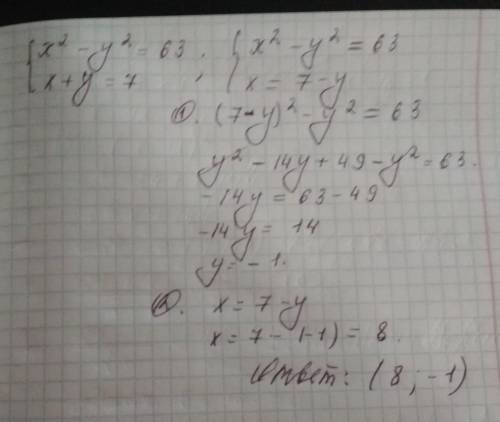 { x² - y² = 63 ; { x² - y² = 63
x + y = 7 , x = 7 - y
①. (7-y)² - y² = 63
y² - 14y + 49 - y² = 63.
-14y = 63 - 49
-14y = 14
y = -1.
②. x = 7 - y
x = 7 - (-1) = 8.
Ответ: (8; -1)